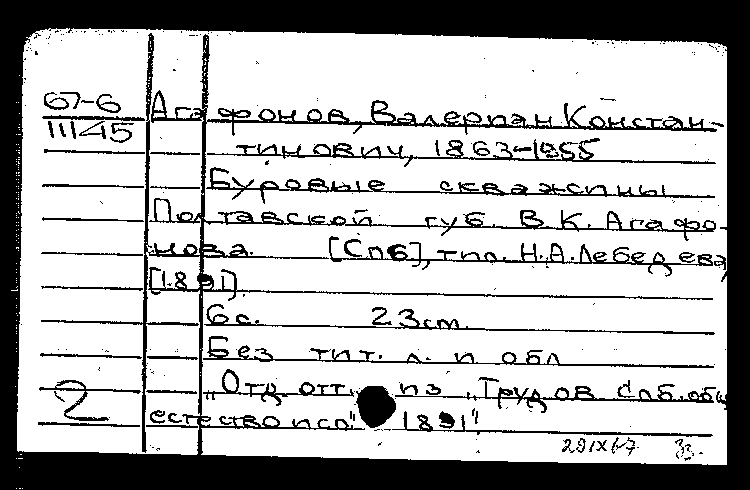 67-6
11145
Агафонов, Валериан Констан-
тинович, 1863-1955
Буровые скважины
Полтавской губ. В.К. Агафо-
нова. [Спб], тип. Н.А. Лебедева,
[1891].
6 с. 23 cm.
Без тит. л. и обл
„Отд. отт. из „Трудов Спб. общ
естествоисп" 1891"
2
291X67